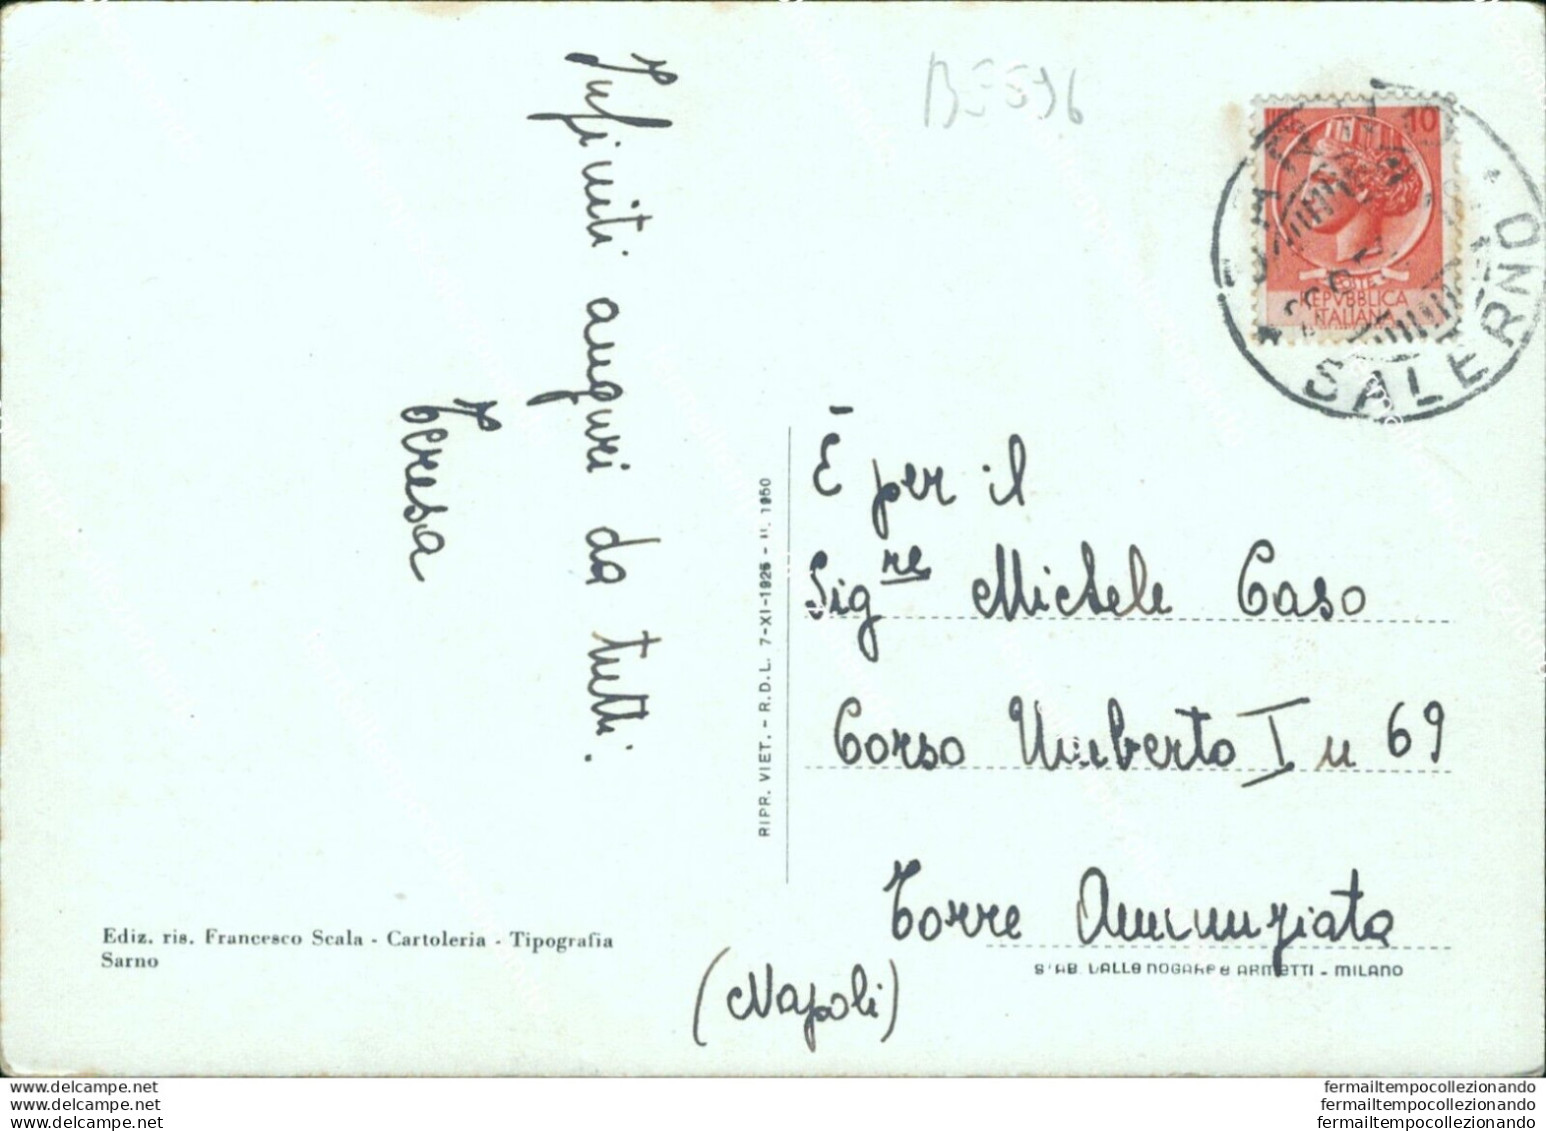 BE596
10
POSTE
REPVBBLICA
ITALIANA
SALERNO
Infiniti auguri da tutti.
Teresa
È per il
Sig.re Michele Caso
Corso Umberto I n 69
Torre Annunziata
(Napoli)
RIPR. VIET. - R.D.L. 7-XI-1925 - N. 1950
Ediz. ris. Francesco Scala - Cartoleria - Tipografia
Sarno
STAB. DALLE NOGARE e ARMETTI - MILANO
www.delcampe.net
www.delcampe.net
www.delcampe.net
fermailtempocollezionando
fermailtempocollezionando
fermailtempocollezionando